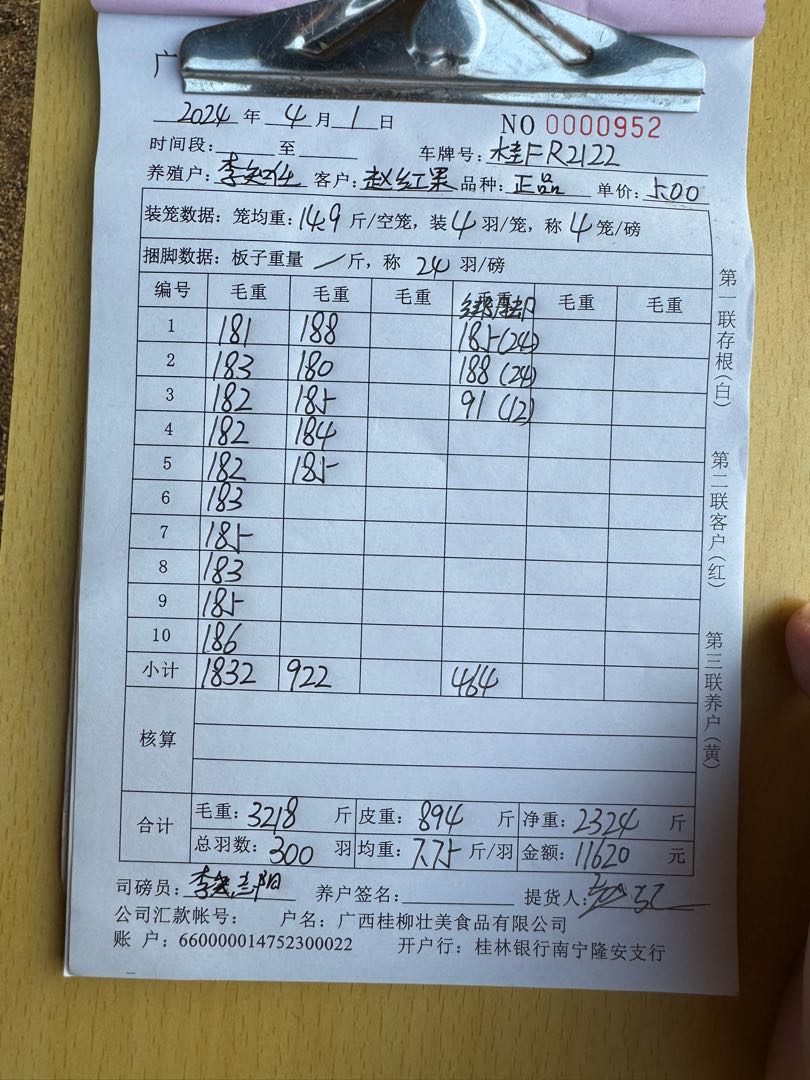 广
2024 年 4 月 1 日 NO 0000952
时间段: 至 车牌号: 桂FR2122
养殖户: 客户: 赵红果 品种: 正品 单价: 5.00
装笼数据: 笼均重: 14.9 斤/空笼, 装 4 羽/笼, 称 4 笼/磅
捆脚数据: 板子重量 / 斤, 称 24 羽/磅
编号 毛重 毛重 毛重 毛重 毛重 毛重
1 181 188 185(24)
2 183 180 188(24)
3 182 185 91(12)
4 182 184
5 182 185
6 183
7 185
8 183
9 185
10 186
小计 1832 922 464
核算
合计 毛重: 3218 斤 皮重: 894 斤 净重: 2324 斤
总羽数: 300 羽 均重: 7.75 斤/羽 金额: 11620 元
司磅员: 养户签名: 提货人:
公司汇款帐号: 户名: 广西桂柳壮美食品有限公司
账 户: 660000014752300022 开户行: 桂林银行南宁隆安支行
第一联存根(白) 第二联客户(红) 第三联养户(黄)